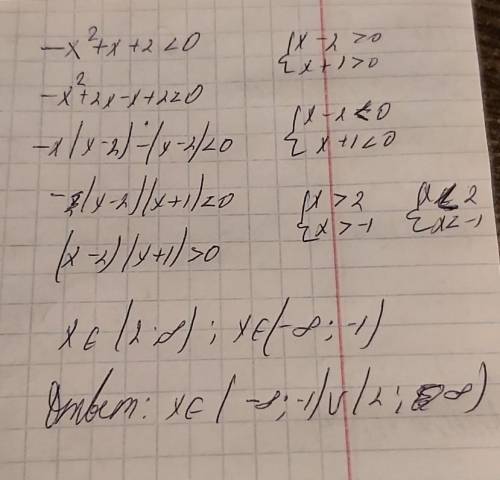 -x²+x+2<0
-x²+2x-x+2<0
-x(x-2)-(x-2)<0
-(x-2)(x+1)<0
(x-2)(x+1)>0
{x-2>0
{x+1>0
{x-2<0
{x+1<0
{x>2 {x<2
{x>-1 {x<-1
x∈(2;∞); x∈(-∞;-1)
Ответ: x∈(-∞;-1)∪(2;∞)